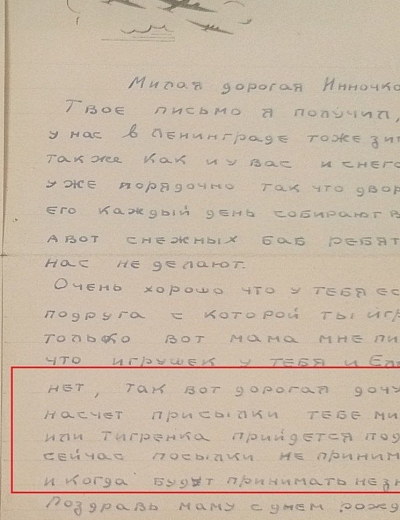 Милая дорогая Инночка
Твое письмо я получил,
у нас в Ленинграде тоже зи
также как и у вас и снего
уже порядочно так что двор
его каждый день собирают в
а вот снежных баб ребят
нас не делают.
Очень хорошо что у тебя ес
подруга с которой ты игр
только вот мама мне пи
что игрушек у тебя и Ел
нет, так вот дорогая дочу
насчет присылки тебе ми
или тигренка прийдется под
сейчас посылки не приним
и когда будут принимать незн
Поздравь маму с днем рожд